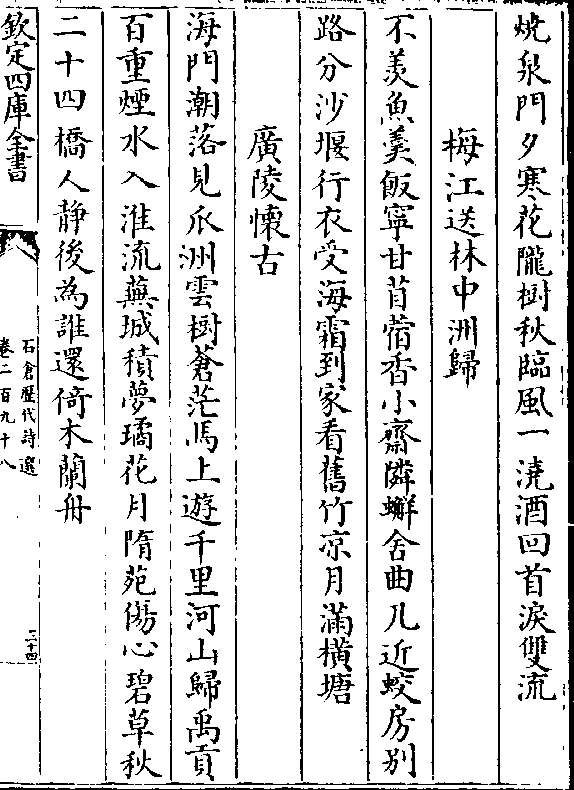 燒泉門夕寒花隴樹秋臨風一澆酒回首淚雙流
梅江送林中洲歸
不羡魚羮飯寧甘苜蓿香小齋隣蠏舍曲几近蛟房别
路分沙堰行衣受海霜到家看舊竹凉月滿橫塘
廣陵懐古
海門潮落見瓜洲雲樹蒼茫馬上遊千里河山歸禹貢
百重煙水入淮流蕪城積夢璚花月隋苑傷心碧草秋
二十四橋人静後為誰還倚木蘭舟
欽定四庫全書
石倉歴代詩選
卷二百九十八
三十四